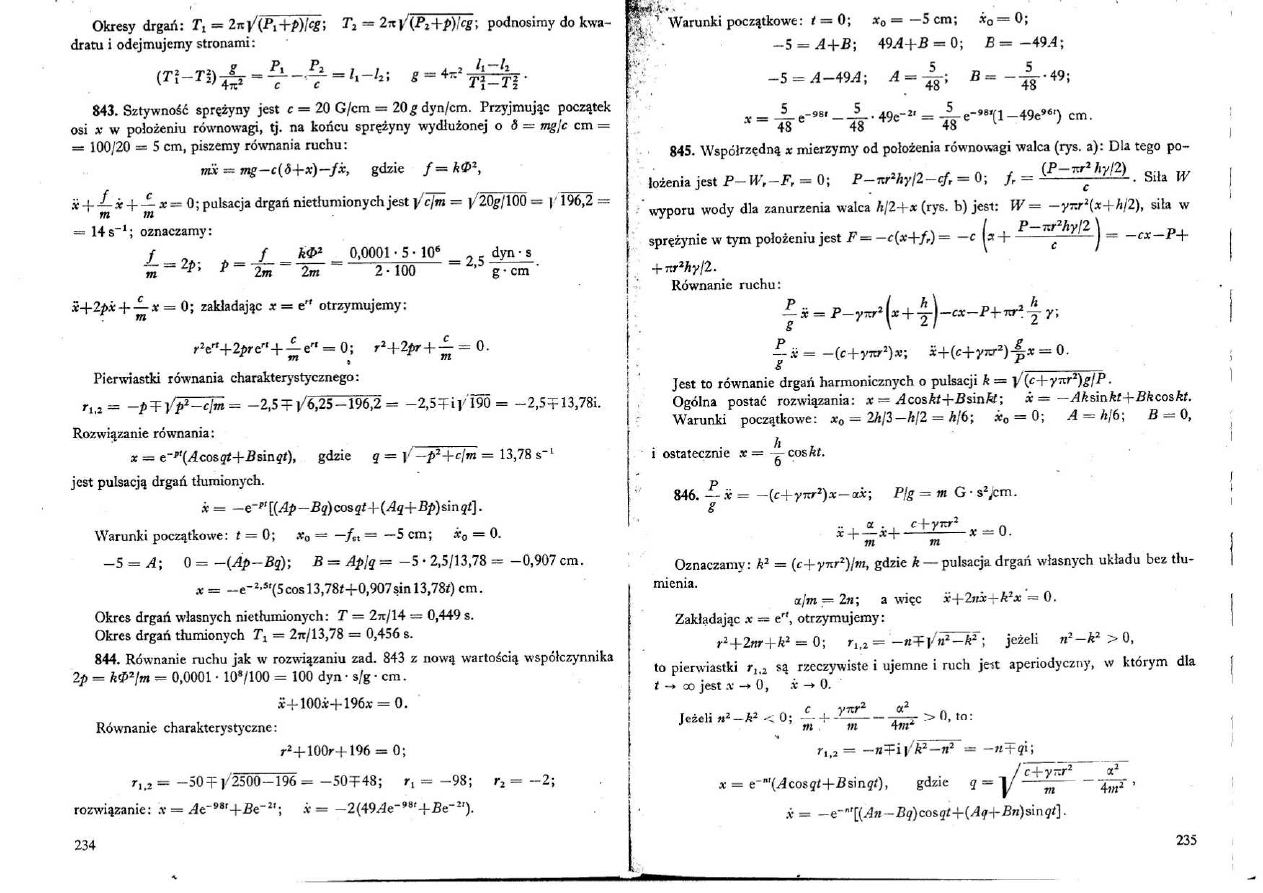 Okresy drgań: T₁ = 2π√(P₁+p)/cg; T₂ = 2π√(P₂+p)/cg; podnosimy do kwa-
dratu i odejmujemy stronami:
(T₁²−T₂²) g/4π² = P₁/c − P₂/c = l₁−l₂; g = 4π² (l₁−l₂)/(T₁²−T₂²).
843. Sztywność sprężyny jest c = 20 G/cm = 20g dyn/cm. Przyjmując początek
osi x w położeniu równowagi, tj. na końcu sprężyny wydłużonej o δ = mg/c cm =
= 100/20 = 5 cm, piszemy równania ruchu:
mẍ = mg−c(δ+x)−fẋ, gdzie f = kΦ²,
ẍ + f/m ẋ + c/m x = 0; pulsacja drgań nietłumionych jest √c/m = √20g/100 = √196,2 =
= 14 s⁻¹; oznaczamy:
f/m = 2p; p = f/2m = kΦ²/2m = 0,0001·5·10⁶/2·100 = 2,5 dyn·s/g·cm.
ẍ+2pẋ + c/m x = 0; zakładając x = eʳᵗ otrzymujemy:
r²eʳᵗ+2preʳᵗ + c/m eʳᵗ = 0; r²+2pr + c/m = 0.
Pierwiastki równania charakterystycznego:
r₁,₂ = −p∓√p²−c/m = −2,5∓√6,25−196,2 = −2,5∓i√190 = −2,5∓13,78i.
Rozwiązanie równania:
x = e⁻ᵖᵗ(Acosqt+Bsinqt), gdzie q = √−p²+c/m = 13,78 s⁻¹
jest pulsacją drgań tłumionych.
ẋ = −e⁻ᵖᵗ[(Ap−Bq)cosqt+(Aq+Bp)sinqt].
Warunki początkowe: t = 0; x₀ = −fₛₜ = −5 cm; ẋ₀ = 0.
−5 = A; 0 = −(Ap−Bq); B = Ap/q = −5·2,5/13,78 = −0,907 cm.
x = −e^(−2,5t)(5cos13,78t+0,907sin13,78t) cm.
Okres drgań własnych nietłumionych: T = 2π/14 = 0,449 s.
Okres drgań tłumionych T₁ = 2π/13,78 = 0,456 s.
844. Równanie ruchu jak w rozwiązaniu zad. 843 z nową wartością współczynnika
2p = kΦ²/m = 0,0001·10⁸/100 = 100 dyn·s/g·cm.
ẍ+100ẋ+196x = 0.
Równanie charakterystyczne:
r²+100r+196 = 0;
r₁,₂ = −50∓√2500−196 = −50∓48; r₁ = −98; r₂ = −2;
rozwiązanie: x = Ae⁻⁹⁸ᵗ+Be⁻²ᵗ; ẋ = −2(49Ae⁻⁹⁸ᵗ+Be⁻²ᵗ).
234
Warunki początkowe: t = 0; x₀ = −5 cm; ẋ₀ = 0;
−5 = A+B; 49A+B = 0; B = −49A;
−5 = A−49A; A = 5/48; B = −5/48·49;
x = 5/48 e⁻⁹⁸ᵗ − 5/48·49e⁻²ᵗ = 5/48 e⁻⁹⁸ᵗ(1−49e⁹⁶ᵗ) cm.
845. Współrzędną x mierzymy od położenia równowagi walca (rys. a): Dla tego po-
łożenia jest P−Wᵣ−Fᵣ = 0; P−πr²hγ/2−cfᵣ = 0; fᵣ = (P−πr²hγ/2)/c. Siła W
wyporu wody dla zanurzenia walca h/2+x (rys. b) jest: W = −γπr²(x+h/2), siła w
sprężynie w tym położeniu jest F = −c(x+fᵣ) = −c (x + P−πr²hγ/2 / c) = −cx−P+
+πr²hγ/2.
Równanie ruchu:
P/g ẍ = P−γπr²(x + h/2)−cx−P+πr² h/2 γ;
P/g ẍ = −(c+γπr²)x; ẍ+(c+γπr²) g/P x = 0.
Jest to równanie drgań harmonicznych o pulsacji k = √(c+γπr²)g/P.
Ogólna postać rozwiązania: x = Acoskt+Bsinkt; ẋ = −Aksinkt+Bkcoskt.
Warunki początkowe: x₀ = 2h/3−h/2 = h/6; ẋ₀ = 0; A = h/6; B = 0,
i ostatecznie x = h/6 coskt.
846. P/g ẍ = −(c+γπr²)x−αẋ; P/g = m G·s²/cm.
ẍ + α/m ẋ + (c+γπr²)/m x = 0.
Oznaczamy: k² = (c+γπr²)/m, gdzie k — pulsacja drgań własnych układu bez tłu-
mienia.
α/m = 2n; a więc ẍ+2nẋ+k²x = 0.
Zakładając x = eʳᵗ, otrzymujemy:
r²+2nr+k² = 0; r₁,₂ = −n∓√n²−k²; jeżeli n²−k² > 0,
to pierwiastki r₁,₂ są rzeczywiste i ujemne i ruch jest aperiodyczny, w którym dla
t → ∞ jest x → 0, ẋ → 0.
Jeżeli n²−k² < 0; c/m + γπr²/m − α²/4m² > 0, to:
r₁,₂ = −n∓i√k²−n² = −n∓qi;
x = e⁻ⁿᵗ(Acosqt+Bsinqt), gdzie q = √(c+γπr²)/m − α²/4m²,
ẋ = −e⁻ⁿᵗ[(An−Bq)cosqt+(Aq+Bn)sinqt].
235